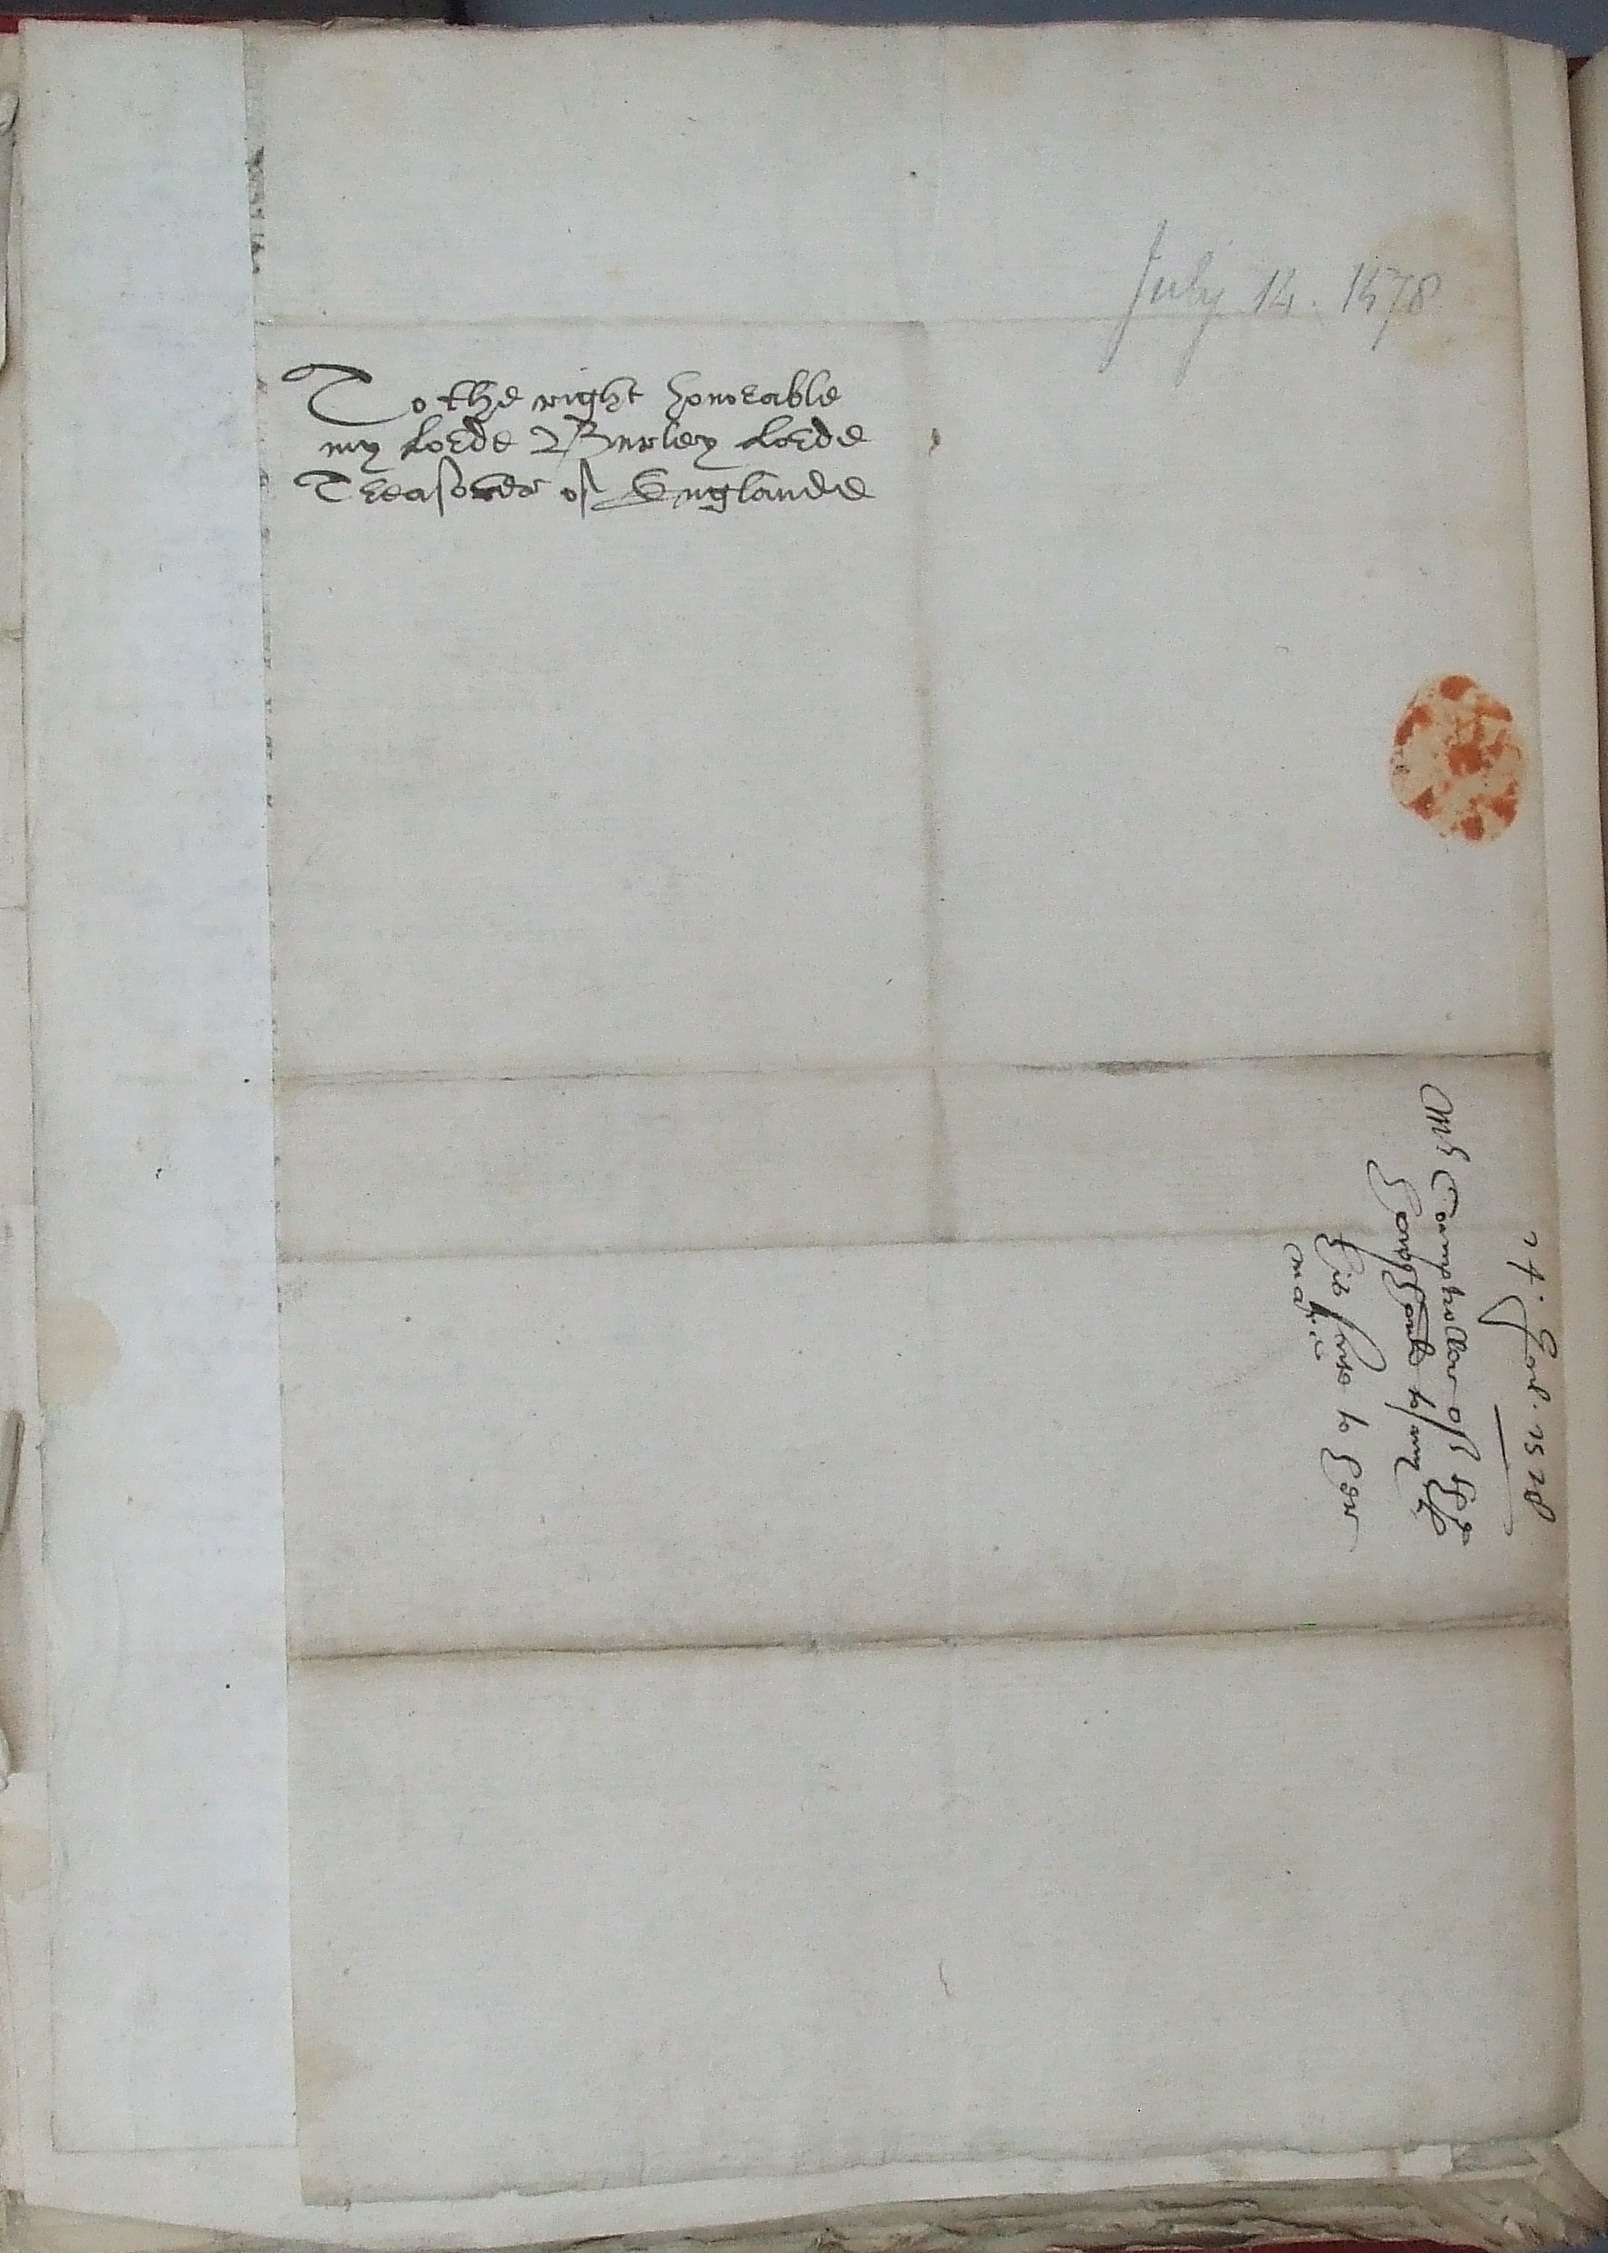 July 14. 1578
To the right honorable
my Lorde Burley Lorde
Treasorer of Englande
14. Julij. 1578
Mr Comptroller of the
howshould to my L.
his sute to her
Matie